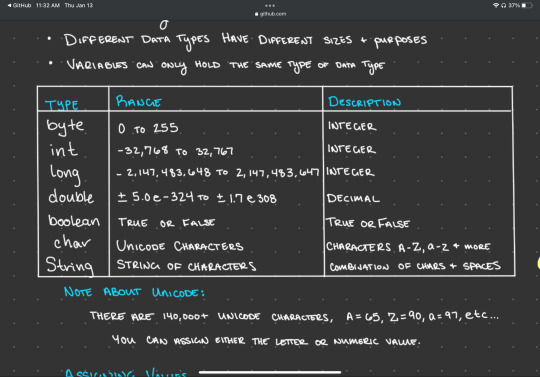 GitHub 11:32 AM Thu Jan 13 37%
github.com
• DIFFERENT DATA TYPES HAVE DIFFERENT SIZES + PURPOSES
• VARIABLES CAN ONLY HOLD THE SAME TYPE OF DATA TYPE
TYPE RANGE DESCRIPTION
byte 0 TO 255 INTEGER
int -32,768 TO 32,767 INTEGER
long -2,147,483,648 TO 2,147,483,647 INTEGER
double ± 5.0e-324 TO ± 1.7e308 DECIMAL
boolean TRUE OR FALSE TRUE OR FALSE
char UNICODE CHARACTERS CHARACTERS A-Z, a-z + MORE
String STRING OF CHARACTERS COMBINATION OF CHARS + SPACES
NOTE ABOUT UNICODE:
THERE ARE 140,000+ UNICODE CHARACTERS, A=65, Z=90, a=97, etc...
YOU CAN ASSIGN EITHER THE LETTER OR NUMERIC VALUE.
ASSIGNING VALUES